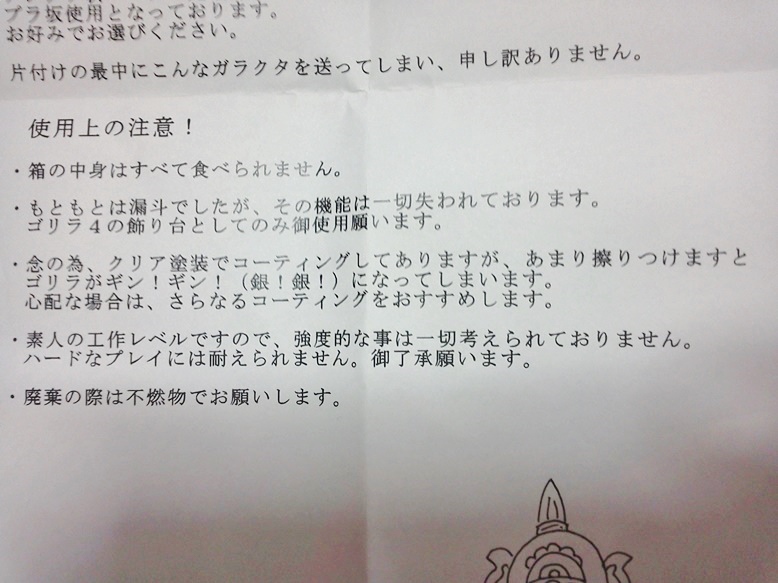 プラ坂使用となっております。
お好みでお選びください。
片付けの最中にこんなガラクタを送ってしまい、申し訳ありません。
使用上の注意！
・箱の中身はすべて食べられません。
・もともとは漏斗でしたが、その機能は一切失われております。
ゴリラ４の飾り台としてのみ御使用願います。
・念の為、クリア塗装でコーティングしてありますが、あまり擦りつけますと
ゴリラがギン！ギン！（銀！銀！）になってしまいます。
心配な場合は、さらなるコーティングをおすすめします。
・素人の工作レベルですので、強度的な事は一切考えられておりません。
ハードなプレイには耐えられません。御了承願います。
・廃棄の際は不燃物でお願いします。